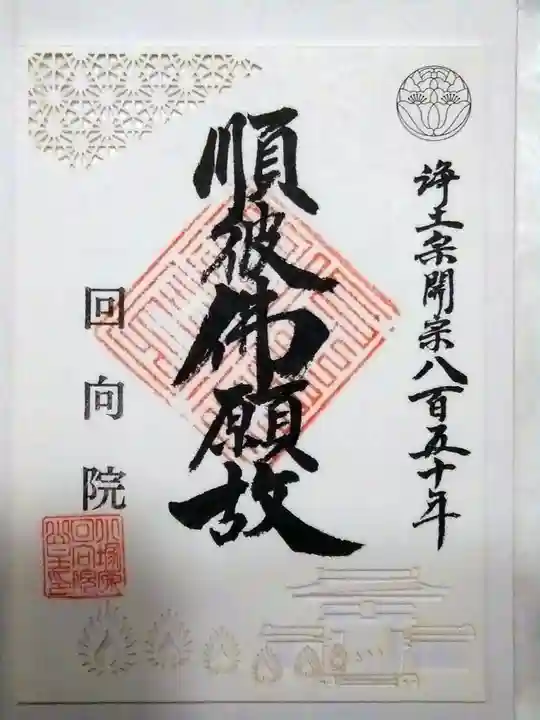 浄土宗開宗八百五十年
順彼佛願故
回向院